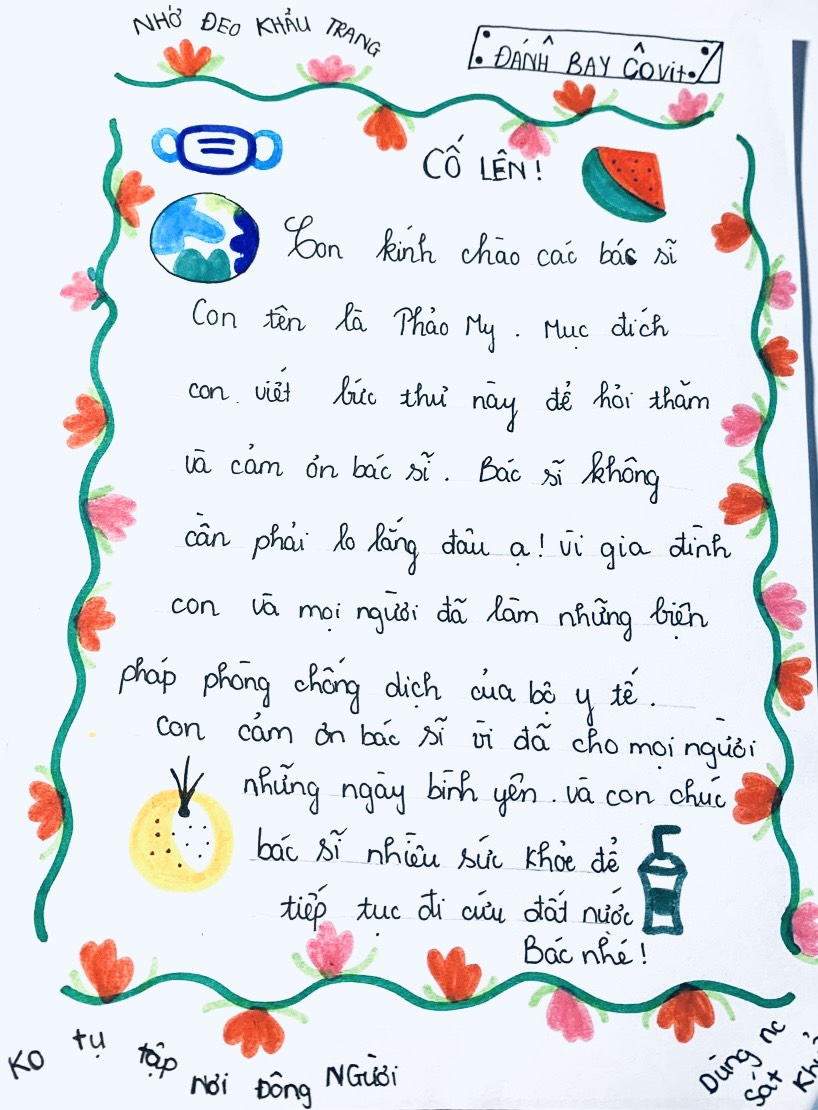 NHỚ ĐEO KHẨU TRANG
ĐÁNH BAY CÔVit
CỐ LÊN!
Con kính chào các bác sĩ
Con tên là Phảo My. Mục đích
con viết bức thư này để hỏi thăm
và cảm ơn bác sĩ. Bác sĩ không
cần phải lo lắng đâu ạ! vì gia đình
con và mọi người đã làm những biện
pháp phòng chống dịch của bộ y tế.
con cảm ơn bác sĩ vì đã cho mọi người
những ngày bình yên. và con chúc
bác sĩ nhiều sức khỏe để
tiếp tục đi cứu đất nước
Bác nhé!
KO tụ tập nơi ĐÔNG NGƯỜI
Dùng nc
sát